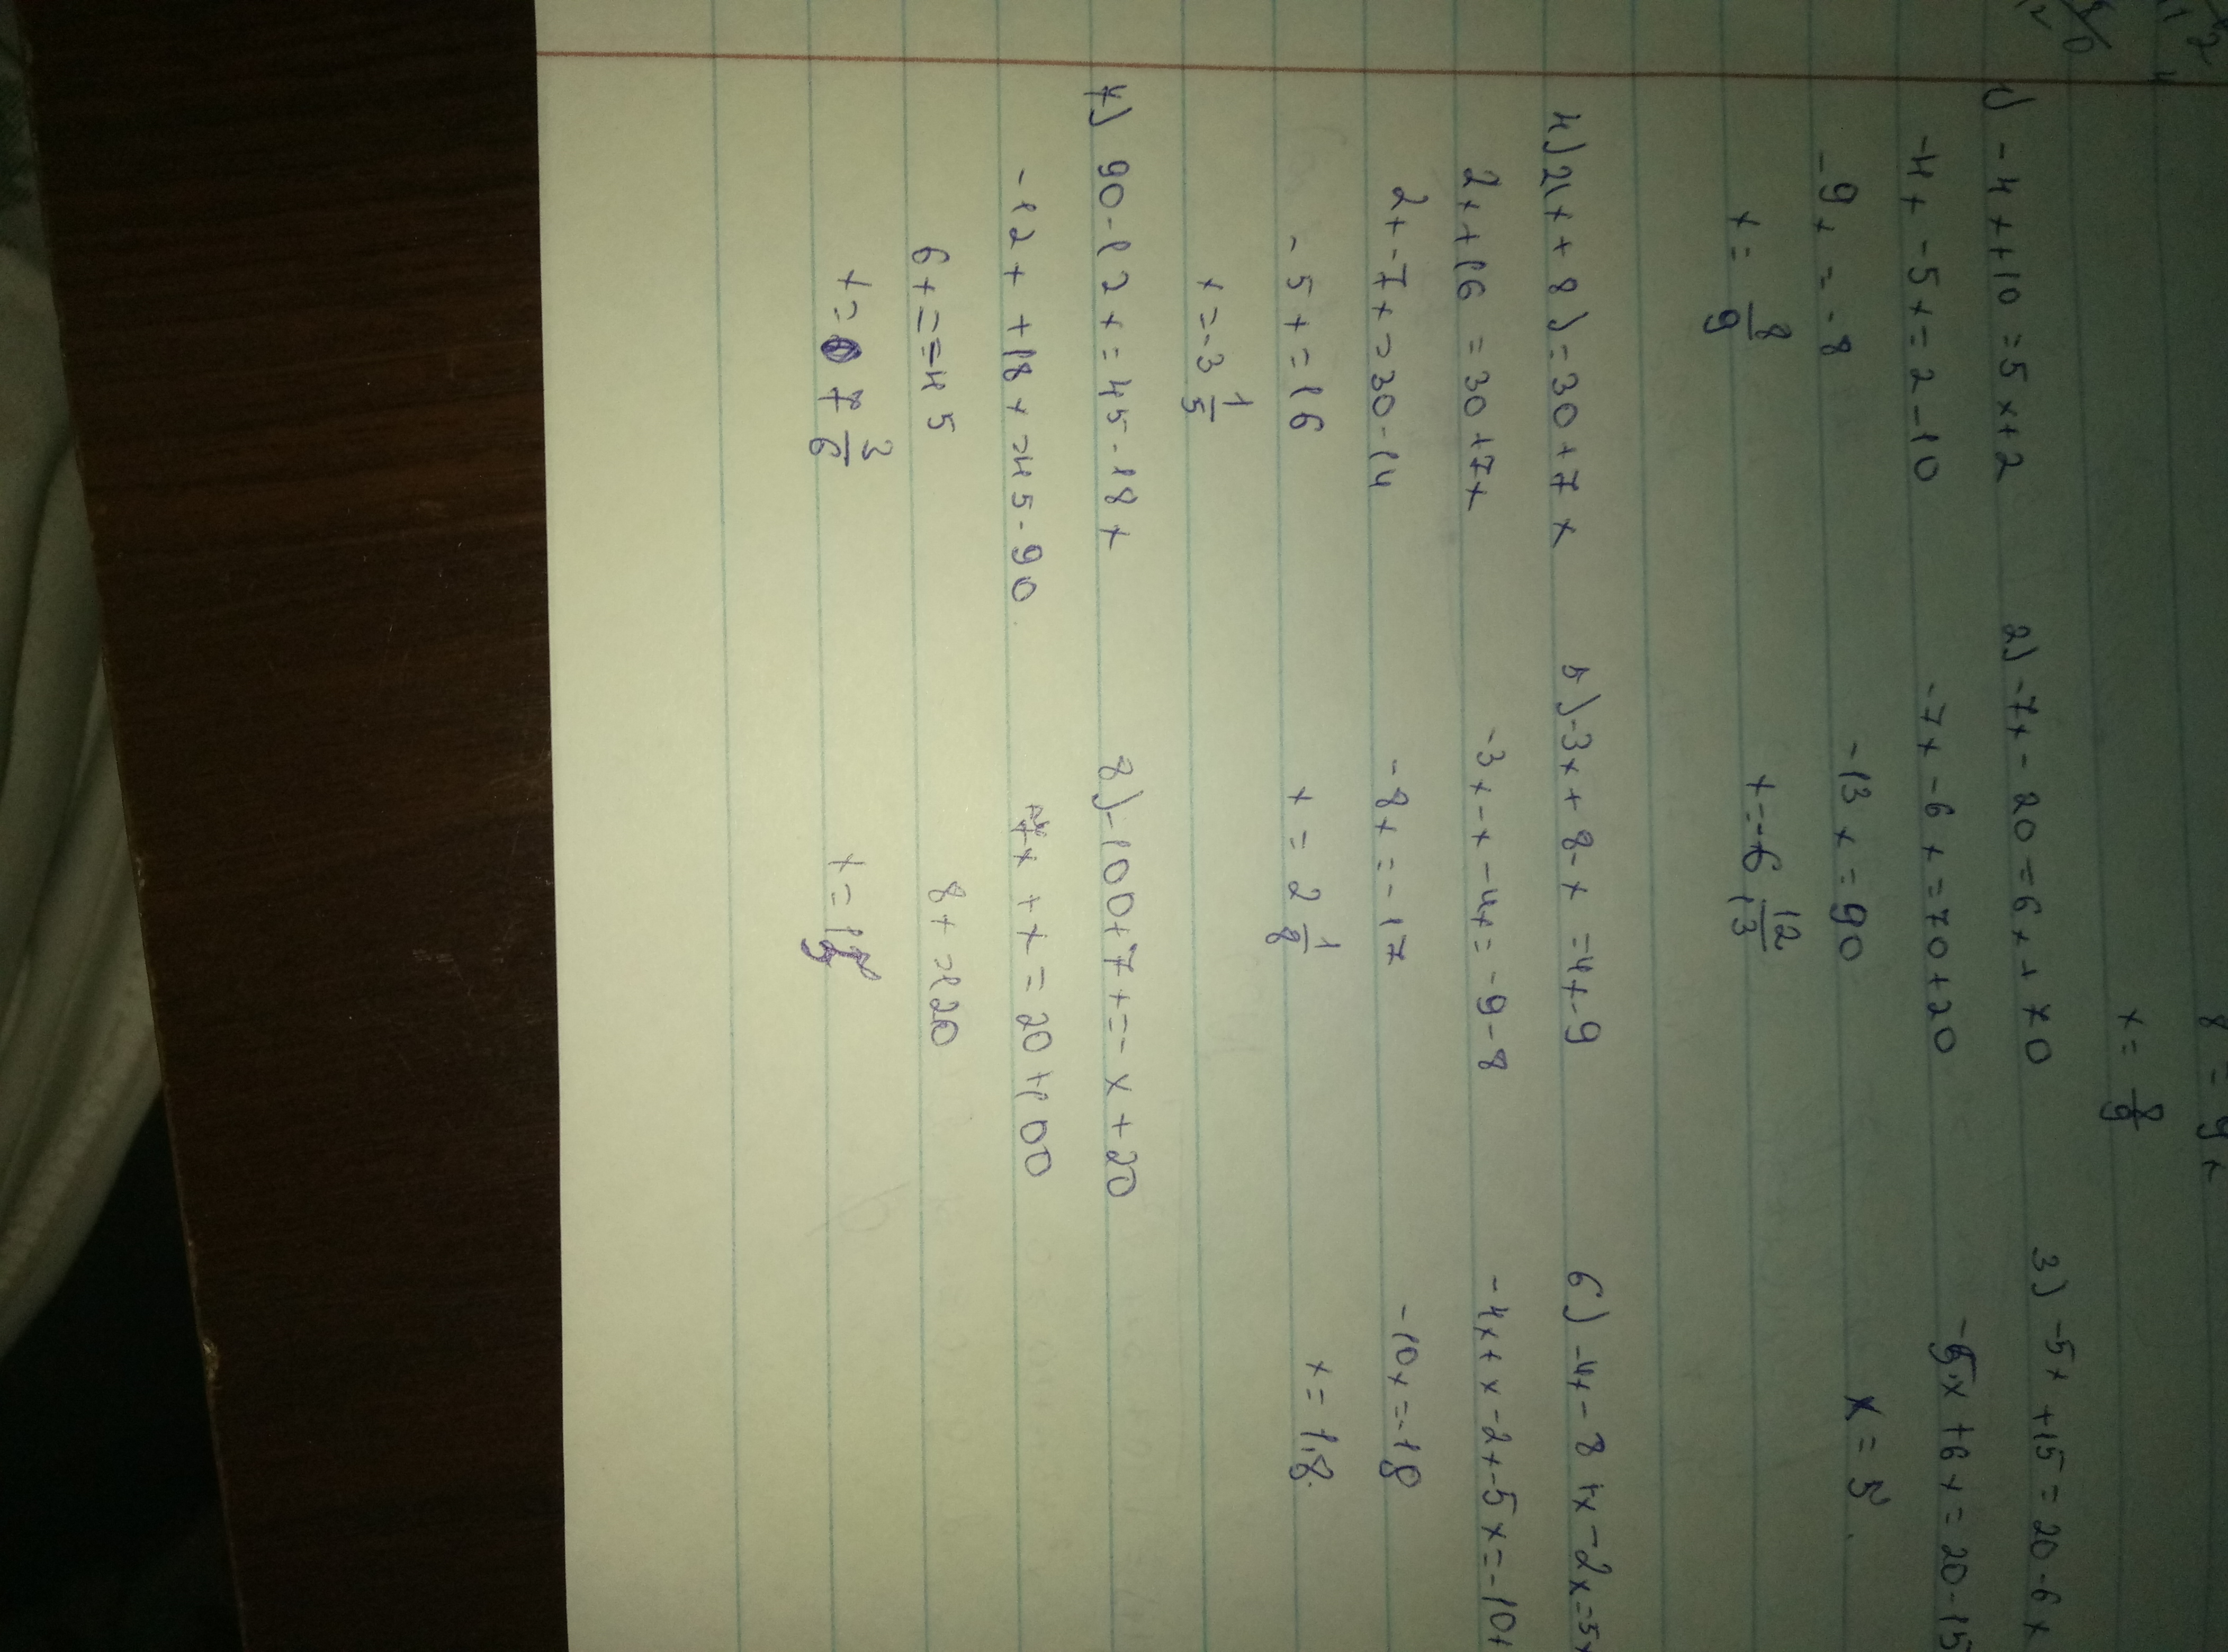 8 = 9x
x = 8/9
1) -4x+10=5x+2
-4x -5x=2-10
-9x = -8
x = 8/9
2) -7x-20=6x+70
-7x-6x=70+20
-13x=90
x=-6 12/13
3) -5x+15=20-6x
-5x+6x=20-15
x=5
4) 2(x+8)=30+7x
2x+16=30+7x
2x-7x=30-14
-5x=16
x=-3 1/5
5) -3x+8-x=4x-9
-3x-x-4x=-9-8
-8x=-17
x = 2 1/8
6) -4x-8+x-2x=5x
-4x+x-2x-5x=-10+
-10x=-18
x=1,8.
7) 90-12x=45-18x
-12x+18x=45-90
6x==45
x= 7 3/6
8) -100+7x=-x+20
7x+x=20+100
8x=120
x=